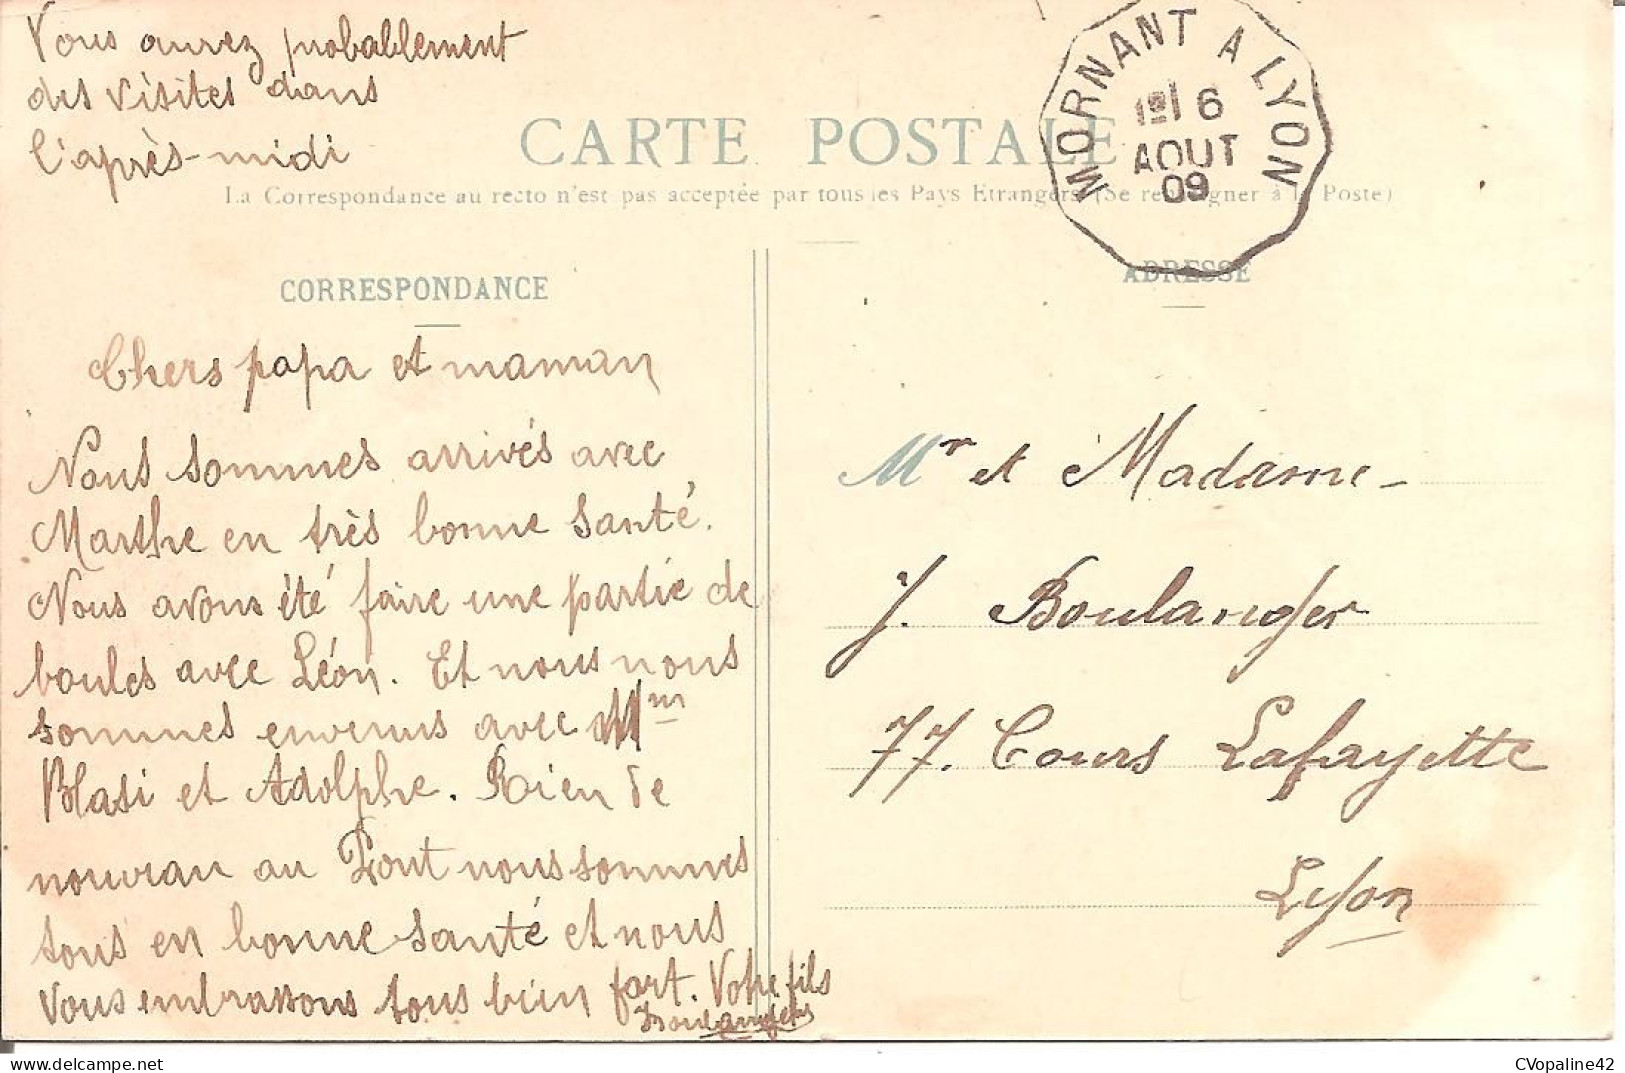 Vous aurez probablement
des visites dans
l'après-midi
CARTE POSTALE
La Correspondance au recto n'est pas acceptée par tous les Pays Etrangers (Se renseigner à la Poste)
MORNANT A LYON
6
AOUT
09
CORRESPONDANCE
Chers papa et maman
Nous sommes arrivés avec
Marthe en très bonne santé.
Nous avons été faire une partie de
boules avec Léon. Et nous nous
sommes envenus avec Mm
Blasi et Adolphe. Rien de
nouveau au Pont nous sommes
tous en bonne santé et nous
vous embrassons tous bien fort. Votre fils
Boulanger
ADRESSE
Mr et Madame
J. Boulanger
77. Cours Lafayette
Lyon
CVopaline42